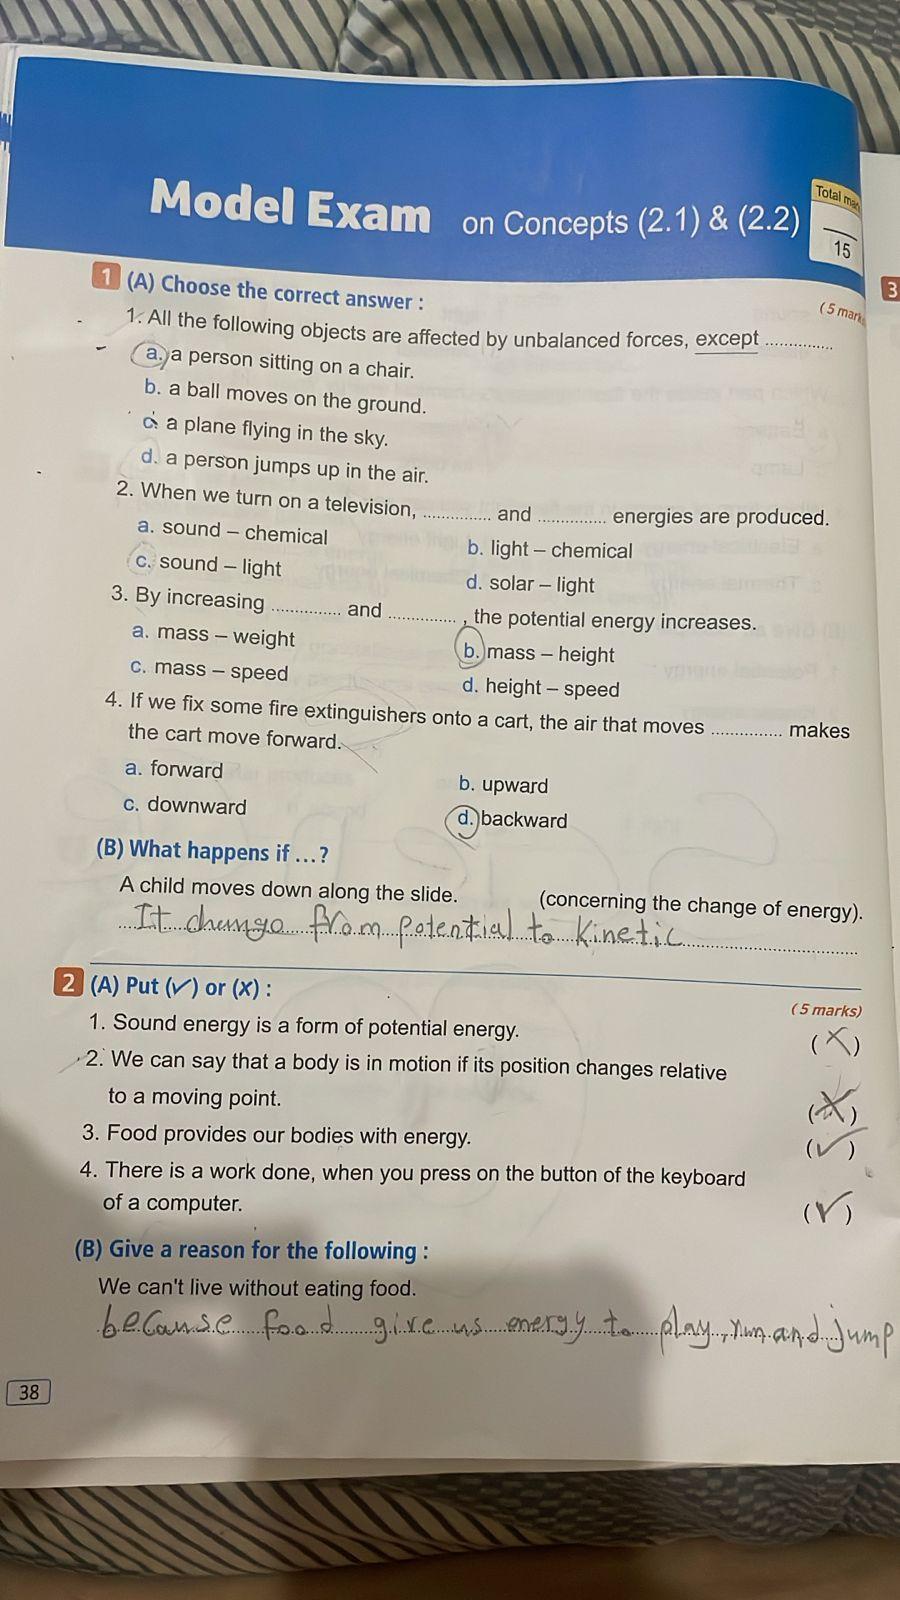 Model Exam on Concepts (2.1) & (2.2)
Total mar
15
1 (A) Choose the correct answer :
(5 mark
3
1. All the following objects are affected by unbalanced forces, except ..............
a. a person sitting on a chair.
b. a ball moves on the ground.
c. a plane flying in the sky.
d. a person jumps up in the air.
2. When we turn on a television, .............. and .............. energies are produced.
a. sound – chemical
b. light – chemical
c. sound – light
d. solar – light
3. By increasing .............. and .............. , the potential energy increases.
a. mass – weight
b. mass – height
c. mass – speed
d. height – speed
4. If we fix some fire extinguishers onto a cart, the air that moves .............. makes
the cart move forward.
a. forward
b. upward
c. downward
d. backward
(B) What happens if ...?
A child moves down along the slide. (concerning the change of energy).
It change from potential to Kinetic
2 (A) Put (✓) or (x) :
(5 marks)
1. Sound energy is a form of potential energy. (X)
2. We can say that a body is in motion if its position changes relative
to a moving point. (X)
3. Food provides our bodies with energy. (✓)
4. There is a work done, when you press on the button of the keyboard
of a computer. (✓)
(B) Give a reason for the following :
We can't live without eating food.
because food give us energy to play, run and jump
38